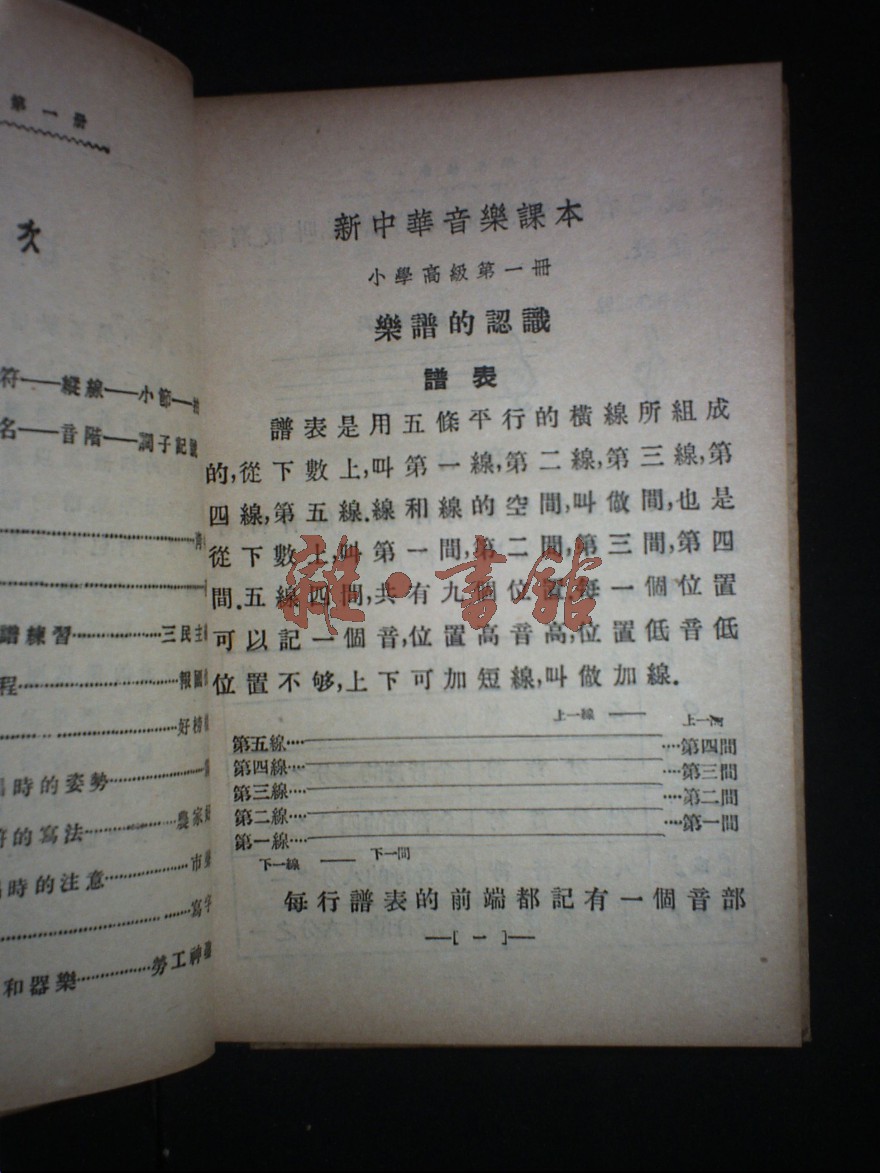 第一册
次
符——縱線——小節——拍
名——音階——調子記號
譜練習⋯⋯三民主
程⋯⋯報國
⋯⋯好榜
時的姿勢⋯⋯
符的寫法⋯⋯農家
時的注意⋯⋯市
⋯⋯寫字
和器樂⋯⋯勞工神
新中華音樂課本
小學高級第一冊
樂譜的認識
譜表
譜表是用五條平行的橫線所組成
的,從下數上,叫第一線,第二線,第三線,第
四線,第五線.線和線的空間,叫做間,也是
從下數上,叫第一間,第二間,第三間,第四
間.五線四間,共有九個位置.每一個位置
可以記一個音,位置高音高,位置低音低
位置不够,上下可加短線,叫做加線.
上一線 —— 上一間
第五線⋯⋯第四間
第四線⋯⋯第三間
第三線⋯⋯第二間
第二線⋯⋯第一間
第一線⋯
下一線 —— 下一間
每行譜表的前端都記有一個音部
—[一]—
雜·書館